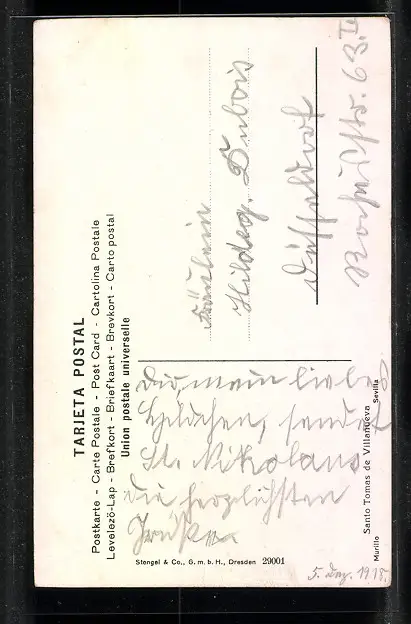 TARJETA POSTAL
Postkarte - Carte Postale - Post Card - Cartolina Postale
Levelezö-Lap - Brefkort - Briefkaart - Brevkort - Carto postal
Union postale universelle
Fräulein
Hildeg. Dubois
Düsseldorf
Str. 63.II
Dir, mein liebes
Hildchen, sendet
St. Nikolaus
die herzlichsten
Grüße
Murillo Santo Tomas de Villanueva Sevilla
Stengel & Co., G. m. b. H., Dresden 29001
5. Dez. 1918.